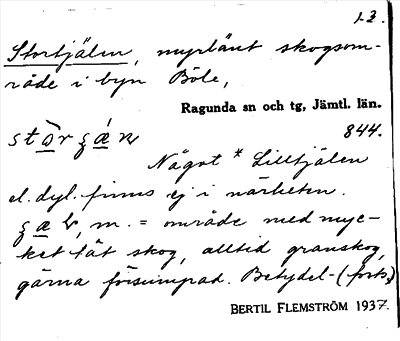 13.
Stortjälen, myrlänt skogsom-
råde i byn Böle,
Ragunda sn och tg, Jämtl. län.
844.
Något * Lilltjälen
el. dyl. finns ej i närheten.
m. = område med myc-
ket tät skog, alltid granskog,
gärna försumpad. Betydel- (forts.)
BERTIL FLEMSTRÖM 1937.